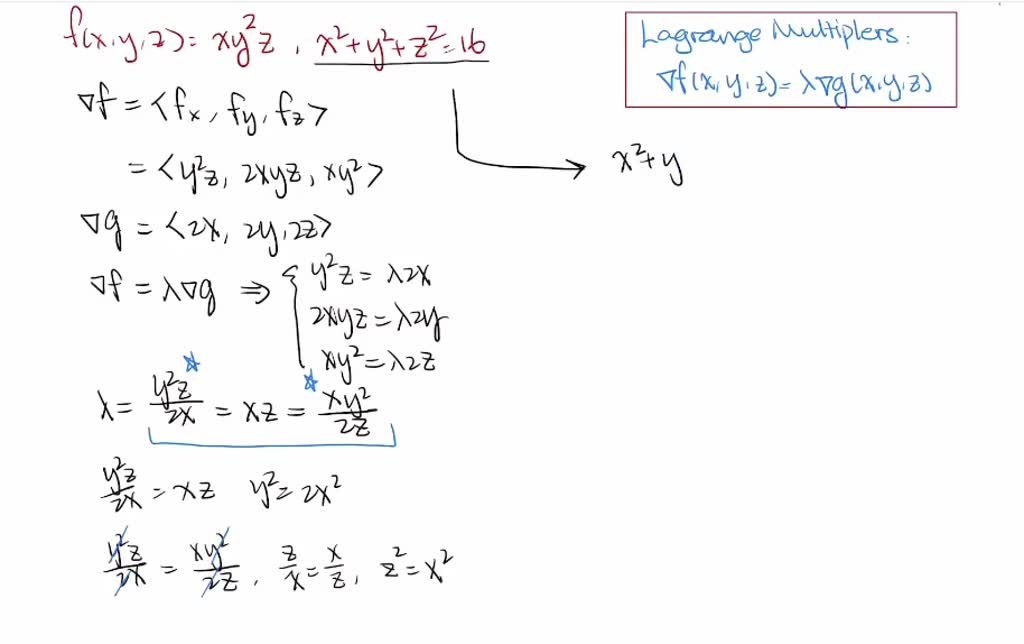 f(x,y,z)= xy²z , x²+y²+z²=16
Lagrange Multipliers:
∇f(x,y,z)=λ∇g(x,y,z)
∇f = <fx, fy, fz>
= <y²z, 2xyz, xy²>
x²+y
∇g = <2x, 2y, 2z>
∇f = λ∇g ⇒ { y²z = λ2x
2xyz = λ2y
xy² = λ2z
λ = y²z/2x = xz = xy²/2z
y²z/2x = xz y² = 2x²
y²z/2x = xy²/2z , z/x = x/z, z² = x²